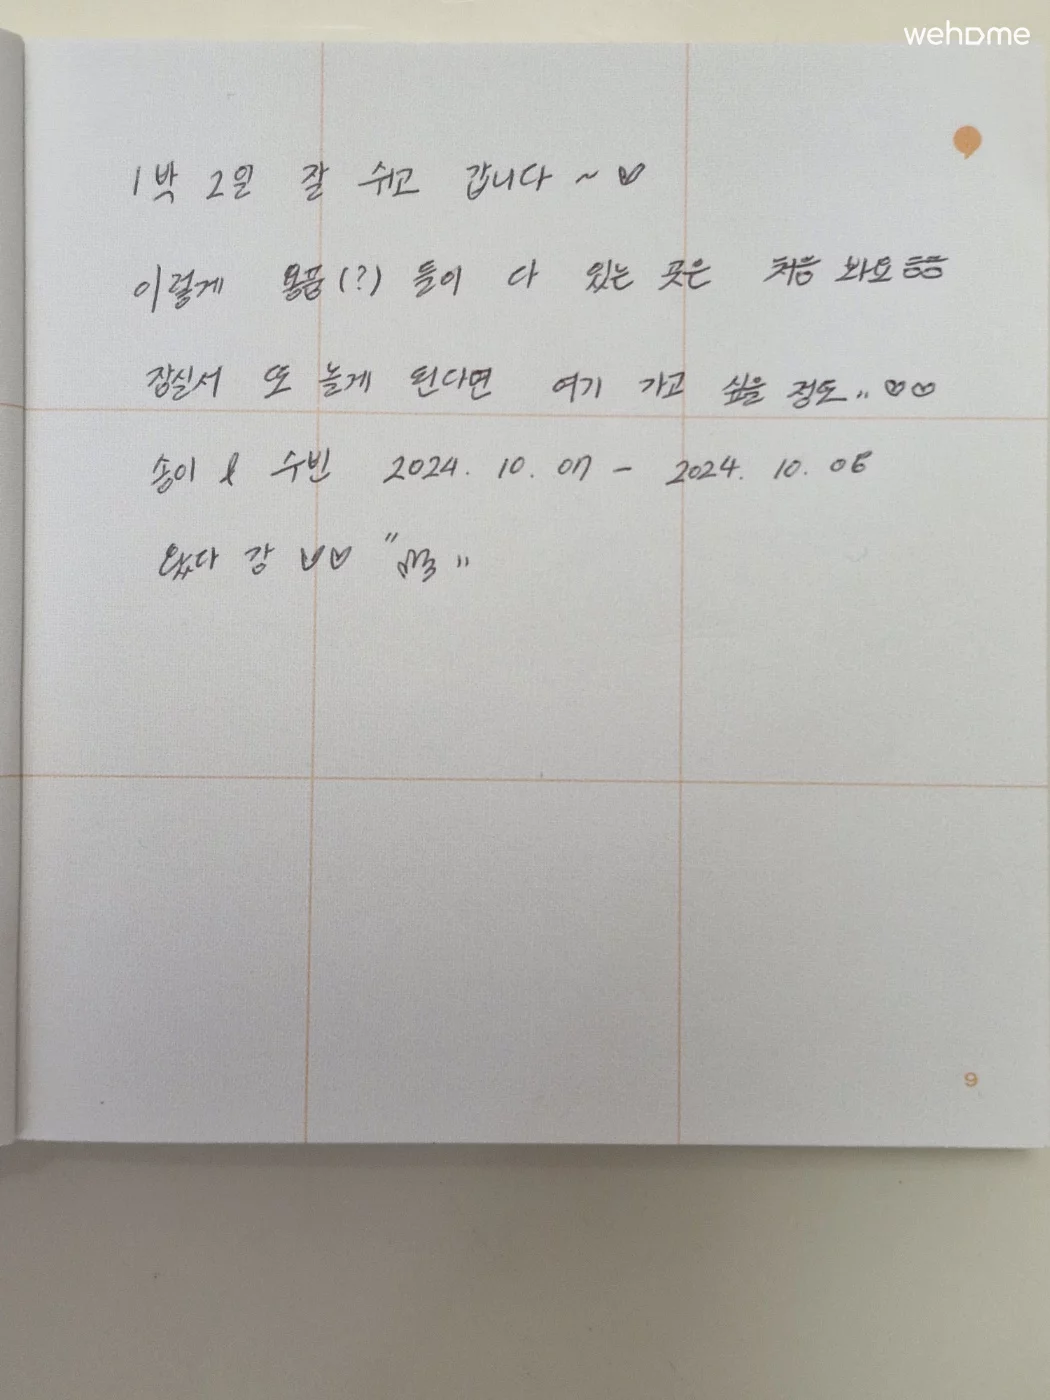 wehome
1박 2일 잘 쉬고 갑니다 ~ ♡
이렇게 용품(?) 들이 다 있는 곳은 처음 봐요 ㅎㅎ
잠실서 또 놀게 된다면 여기 가고 싶을 정도.. ♡♡
송이 & 수빈 2024. 10. 07 - 2024. 10. 08
왔다 감 ♡♡ " "
9